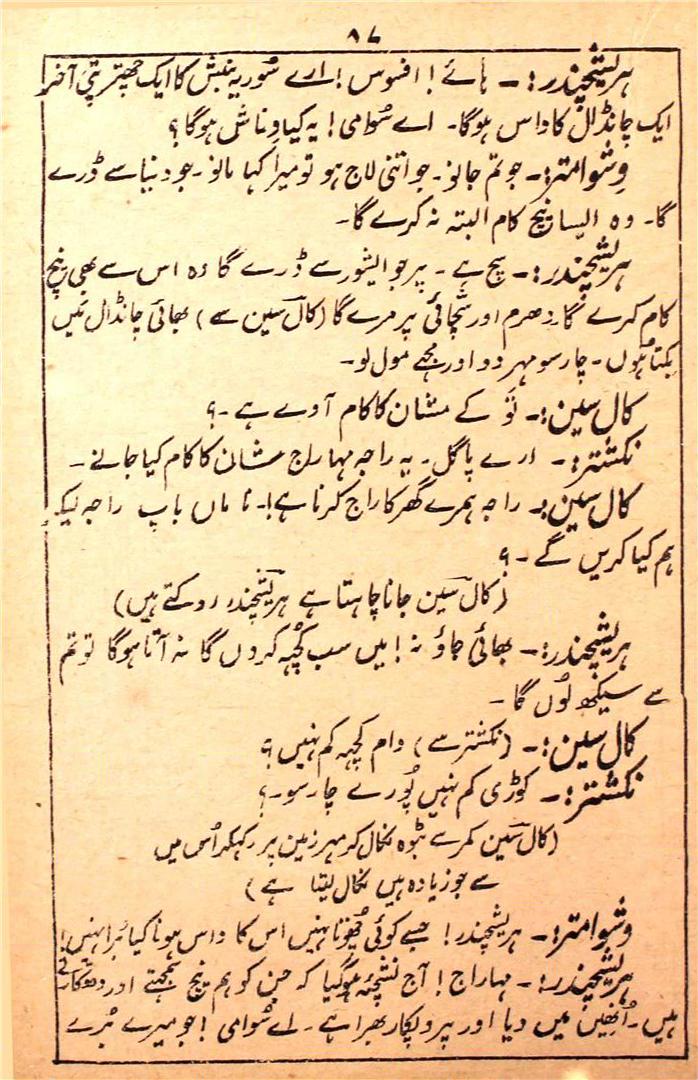 ۸۷
ہریشچندر:۔ ہائے! افسوس! ارے سُوریہ بنش کا ایک چھتر پتی آخر
ایک چانڈال کا داس ہوگا۔ اے سُوامی! یہ کیا وِناش ہوگا؟
وِشوامتر:۔ جو تم جانو۔ جو اتنی لاج ہو تو میرا کہا مانو۔ جو دنیا سے ڈرے
گا۔ وہ ایسا نیچ کام البتہ نہ کرے گا۔
ہریشچندر:۔ سچ ہے۔ پر جو ایشور سے ڈرے گا وہ اس سے بھی نیچ
کام کرے گا۔ دھرم اور سُچائی پر مرے گا (کال سین سے) بھائی چانڈال میں
بکتا ہوں۔ چار سو مہر دو اور مجہے مول لو۔
کال سین:۔ تو کے مشان کا کام آوے ہے۔؟
نکشتر:۔ ارے پاگل۔ یہ راجہ مہاراج مشان کا کام کیا جانے۔
کال سین:۔ راجہ ہمرے گھر کا راج کرنا ہے!۔ نا ماں باپ راجہ لیکے
ہم کیا کریں گے۔؟
(کال سین جانا چاہتا ہے ہریشچندر روکتے ہیں)
ہریشچندر:۔ بھائی جاؤ نہ! میں سب کچہہ کروں گا نہ آتا ہوگا تو تم
سے سیکھ لوں گا۔
کال سین:۔ (نکشتر سے) دام کچہہ کم نہیں؟
نکشتر:۔ کوڑی کم نہیں پُورے چار سو۔؟
(کال سین کمر سے بٹوہ نکال کر مہر زمین پر رکہکر اُس میں
سے جو زیادہ ہیں نکال لیتا ہے)
وشوامتر:۔ ہریشچندر! جسے کوئی چھُوتا نہیں اس کا داس ہونا کیا بُرا نہیں!
ہریشچندر:۔ مہاراج! آج نشچے ہوگیا کہ جن کو ہم نیچ سمجہتے اور دھتکارتے
ہیں۔ اُنھیں میں دیا اور پروپکار بھرا ہے۔ اے سُوامی! جو میرے بُرے